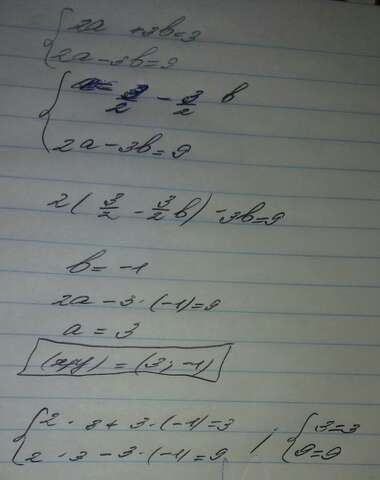 { 2a + 3b = 3
2a - 3b = 9
{ a = 3/2 - 3/2 b
2a - 3b = 9
2 ( 3/2 - 3/2 b ) - 3b = 9
b = -1
2a - 3 · (-1) = 9
a = 3
(x;y) = (3; -1)
{ 2 · 3 + 3 · (-1) = 3 ; { 3 = 3
2 · 3 - 3 · (-1) = 9 9 = 9